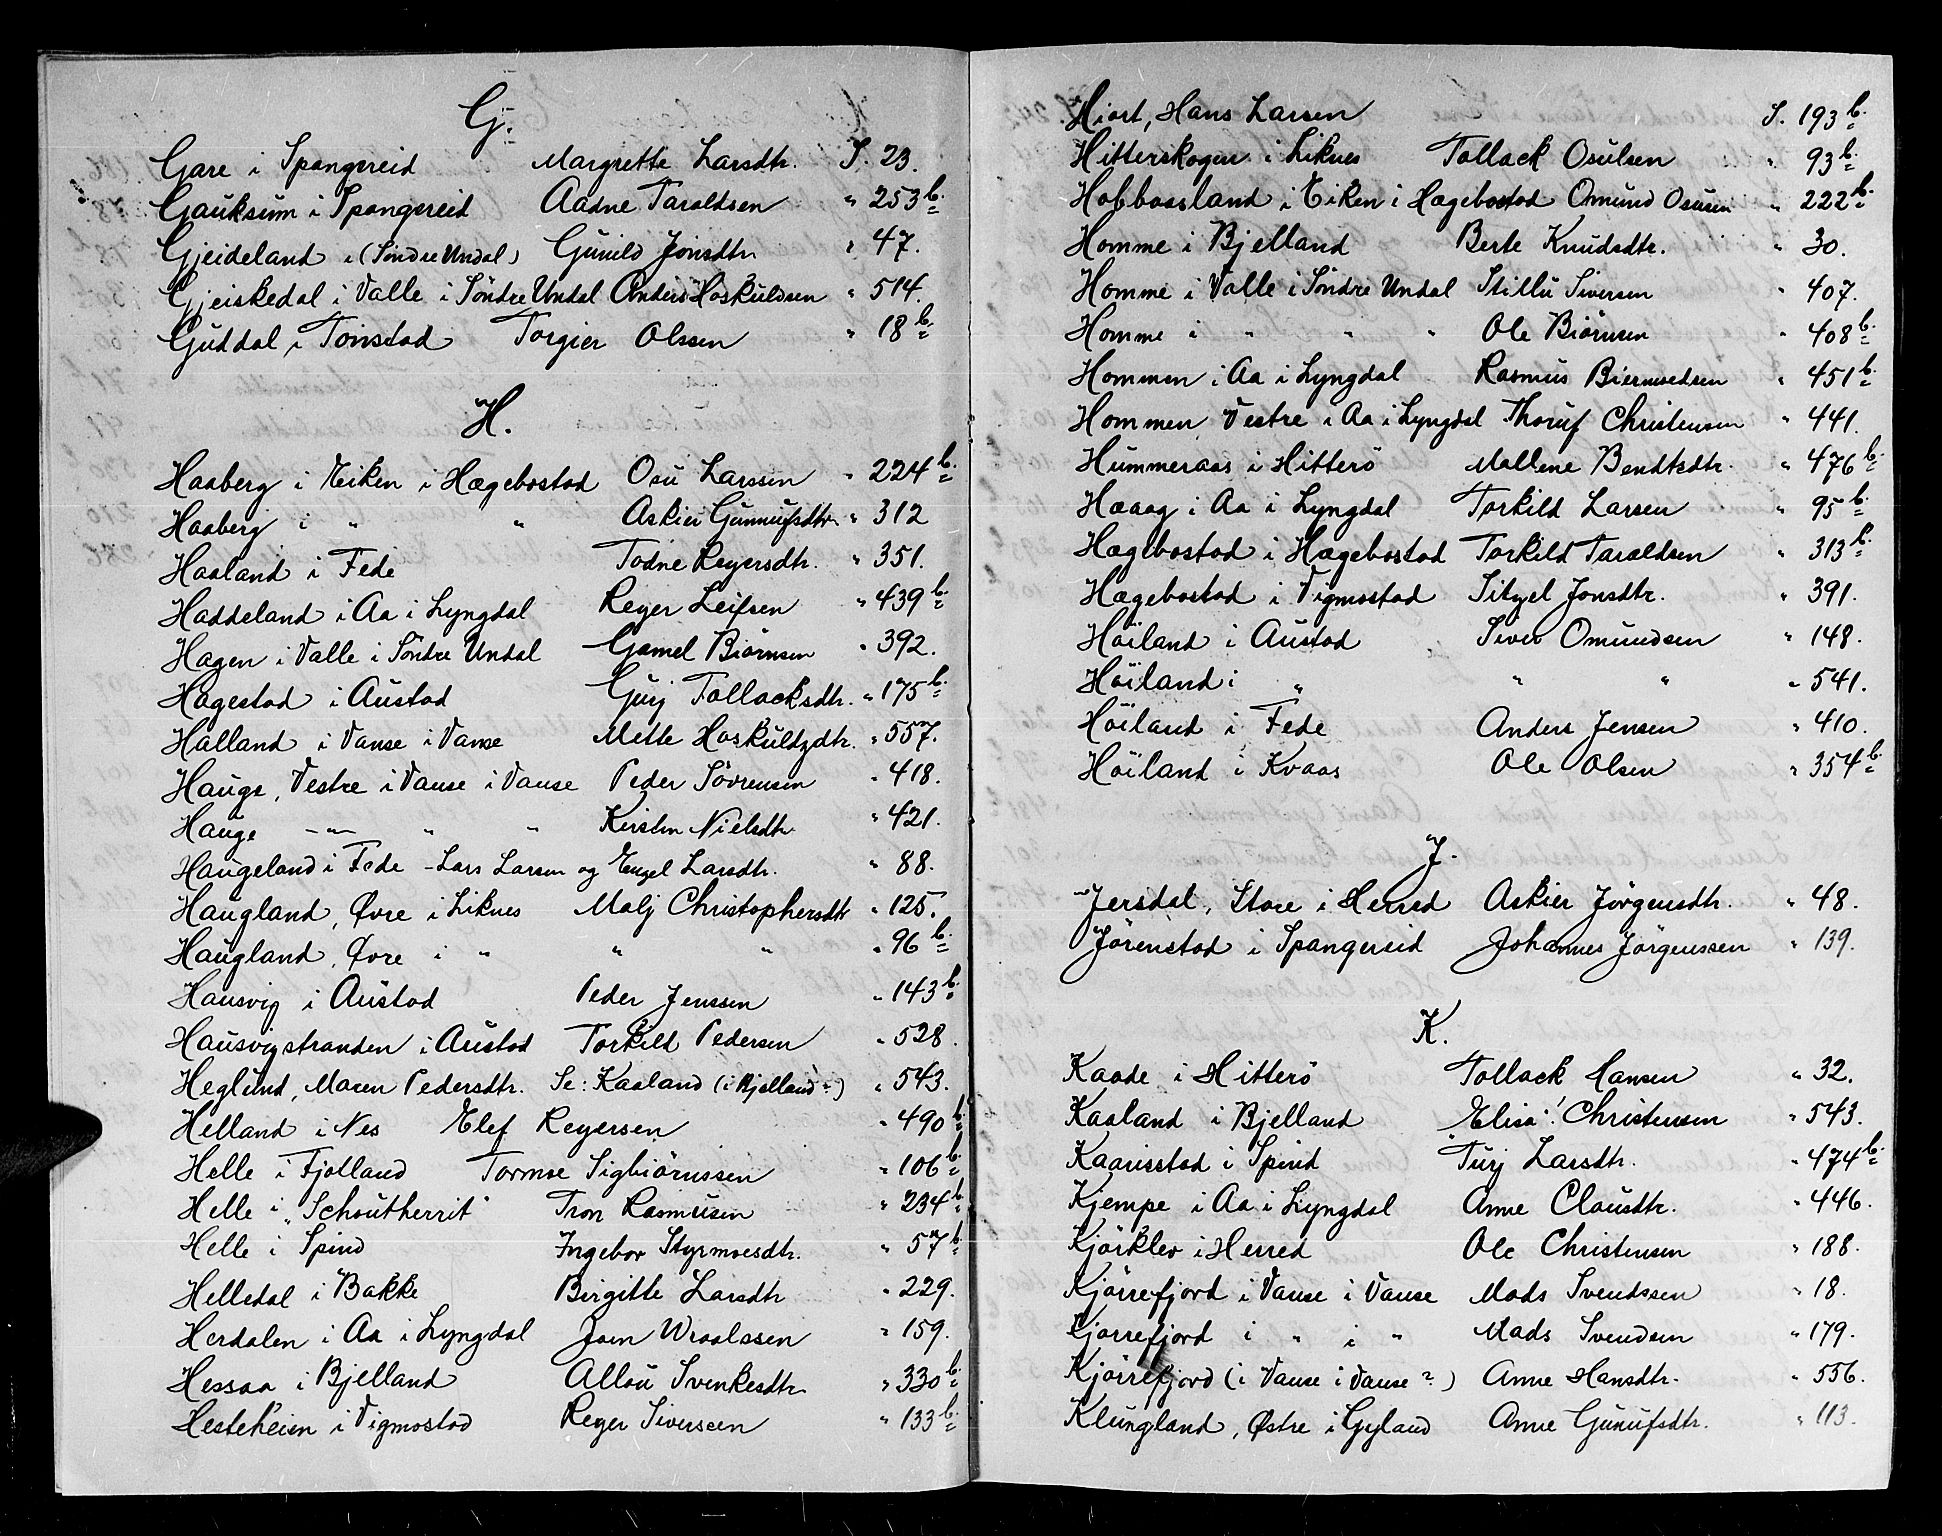 G.
Gare i Spangereid Margrette Larsdtr. S. 23.
Gauksum i Spangereid Aadne Taraldsen " 253 b.
Gjeideland i (Söndre Undal) Gunild Jonsdtr " 47.
Gjeiskedal i Valle i Söndre Undal Anders Hoskuldsen " 514.
Guddal i Tonstad Torgier Olssen " 18 b.
H.
Haaberg i Eiken i Hægebostad Osu Larssen " 224 b.
Haaberg i " " Askier Gunnufsdtr. " 312
Haaland i Fede Todne Reyersdtr. " 351.
Haddeland i Aa i Lyngdal Reyer Leifsen " 439 b.
Hagen i Valle i Söndre Undal Gamel Biörnsen " 392.
Hagestad i Austad Gurj Tollacksdtr. " 175 b.
Halland i Vanse i Vanse Mette Hoskuldzdtr. " 557.
Hauge, Vestre i Vanse i Vanse Peder Sövrensen " 418.
Hauge -"- " " Kirsten Nielsdtr " 421.
Haugeland i Fede - Lars Larsen og Engel Larsdtr. " 88.
Haugland, Øvre i Liknes Malj Christophersdtr " 125.
Haugland, Øvre i " " " " 96 b.
Hausvig i Austad Peder Jenssen " 143 b.
Hausvigstranden i Austad Torkild Pedersen " 528.
Heglund, Maren Pedersdtr. Se: Kaaland (i Bjelland?) " 543.
Helland i Nes Elef Reyersen " 490 b.
Helle i Fjotland Tormoe Sigbiörnssen " 106 b.
Helle i "Schoutherrit" Tron Rasmusen " 234 b.
Helle i Spind Ingebor Styrmoesdtr. " 57 b.
Helledal i Bakke Birgitte Larsdtr " 229.
Herdalen i Aa i Lyngdal Joen Wraalssen " 159.
Hessaa i Bjelland Allou Svenkesdtr. " 330 b.
Hesteheien i Vigmostad Reyer Siversen " 133 b.
Hiort, Hans Larsen S. 193 b.
Hitterskogen i Liknes Tollack Osulsen " 93 b.
Hobbaasland i Eiken i Hægebostad Omund Osusen " 222 b.
Homme i Bjelland Berte Knudsdtr. " 30.
Homme i Valle i Söndre Undal Stillu Siversen " 407.
Homme i " " " Ole Biörnsen " 408 b.
Hommen i Aa i Lyngdal Rasmus Biernuedsen " 451 b.
Hommen, Vestre i Aa i Lyngdal Thoruf Christensen " 441.
Hummeraas i Hitterö Mallene Bendtsdtr. " 476 b.
Hæaag i Aa i Lyngdal Torkild Larsen " 95 b.
Hægebostad i Hægebostad Torkild Taraldsen " 313 b.
Hægebostad i Vigmostad Sitzel Jonsdtr. " 391.
Höiland i Austad Siver Omundsen " 148.
Höiland i " " " " 541.
Höiland i Fede Anders Jensen " 410.
Höiland i Kvaas Ole Olsen " 354 b.
J.
Jersdal, Store i Herred Askier Jörgensdtr. " 48.
Jörenstad i Spangereid Johannes Jörgenssen " 139.
K.
Kaade i Hitterö Tollack Hansen " 32.
Kaaland i Bjelland Elisa! Christensen " 543.
Kaarisstad i Spind Turj Larsdtr. " 474 b.
Kjempe i Aa i Lyngdal Anne Clausdtr. " 446.
Kjörklev i Herred Ole Christensen " 188.
Kjörrefjord i Vanse i Vanse Mads Svendssen " 18.
Kjörrefjord i " i " Mads Svendsen " 179.
Kjörrefjord (i Vanse i Vanse?) Anne Hansdtr. " 556.
Klungland, Østre i Gyland Anne Gunufsdtr. " 113.